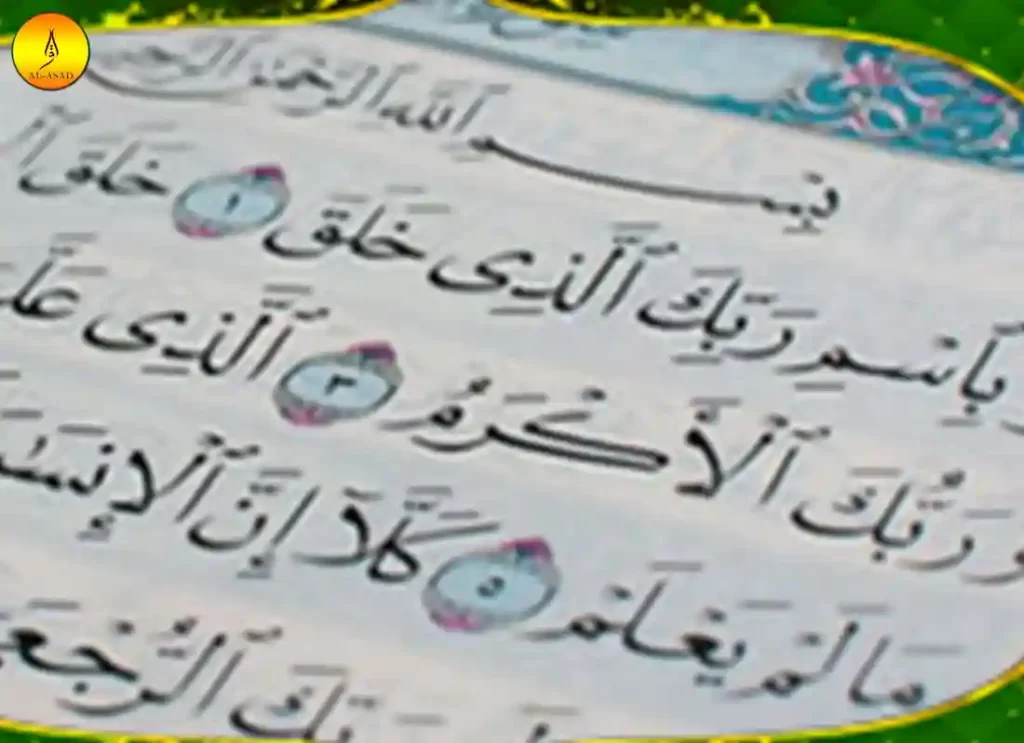 AL-ASAD
بِسْمِ ٱللَّهِ ٱلرَّحْمَٰنِ ٱلرَّحِيمِ
بِٱسْمِ رَبِّكَ ٱلَّذِى خَلَقَ ١ خَلَقَ
وَرَبُّكَ ٱلْأَكْرَمُ ٣ ٱلَّذِى
مَا لَمْ يَعْلَمْ ٥ كَلَّآ إِنَّ ٱلْإِنسَـٰ
ٱلرُّجْعَ